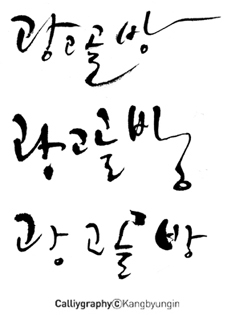 광고골방
광고골방
광고골방
CalliygraphyⓒKangbyungin